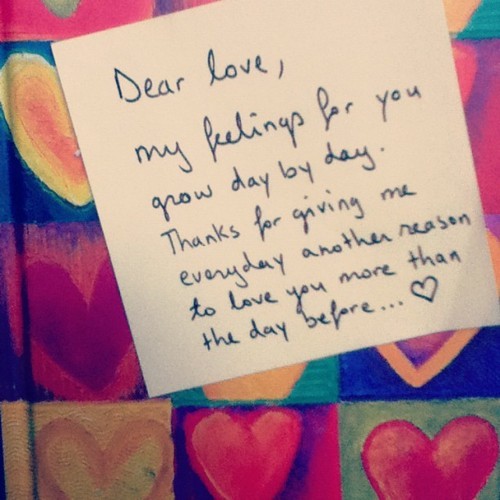 Dear love,
my feelings for you
grow day by day.
Thanks for giving me
everyday another reason
to love you more than
the day before... ♡